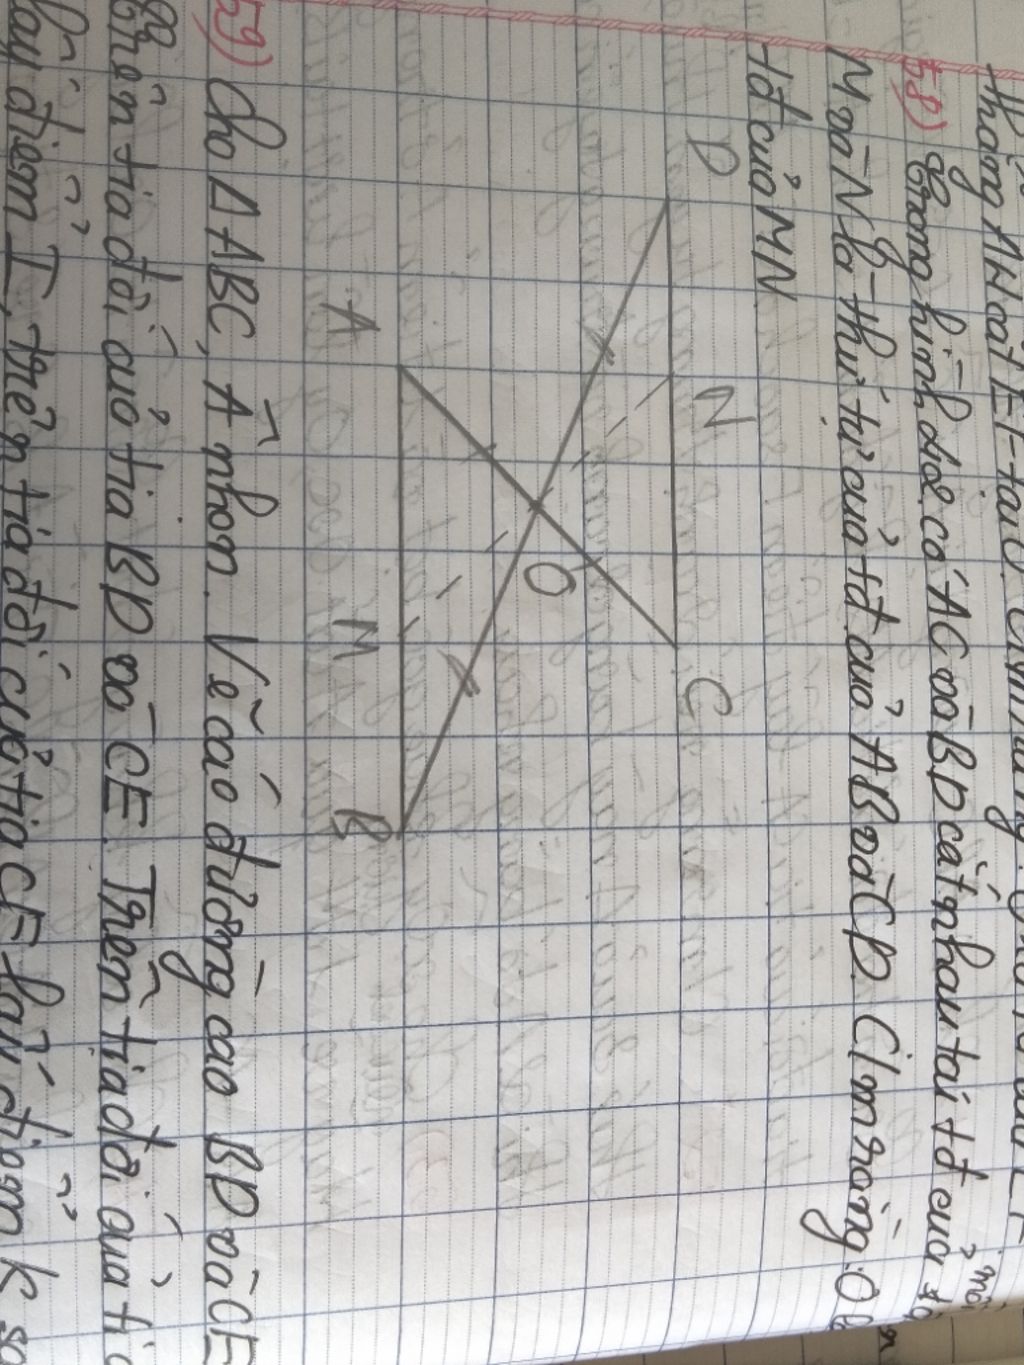 thẳng AH cắt EF tại O.
5.8) Trong hình dưới có AC và BD cắt nhau tại tđ của mỗi
M và N là thứ tự của tđ của AB và CD. C/m rằng O
tđ của MN
D N C
O
A M B
59) Cho Δ ABC, Â nhọn. Vẽ các đường cao BD và CE
Trên tia đối của tia BD và CE. Trên tia đối của ti
lấy điểm I, trên tia đối của tia CE lấy điểm K